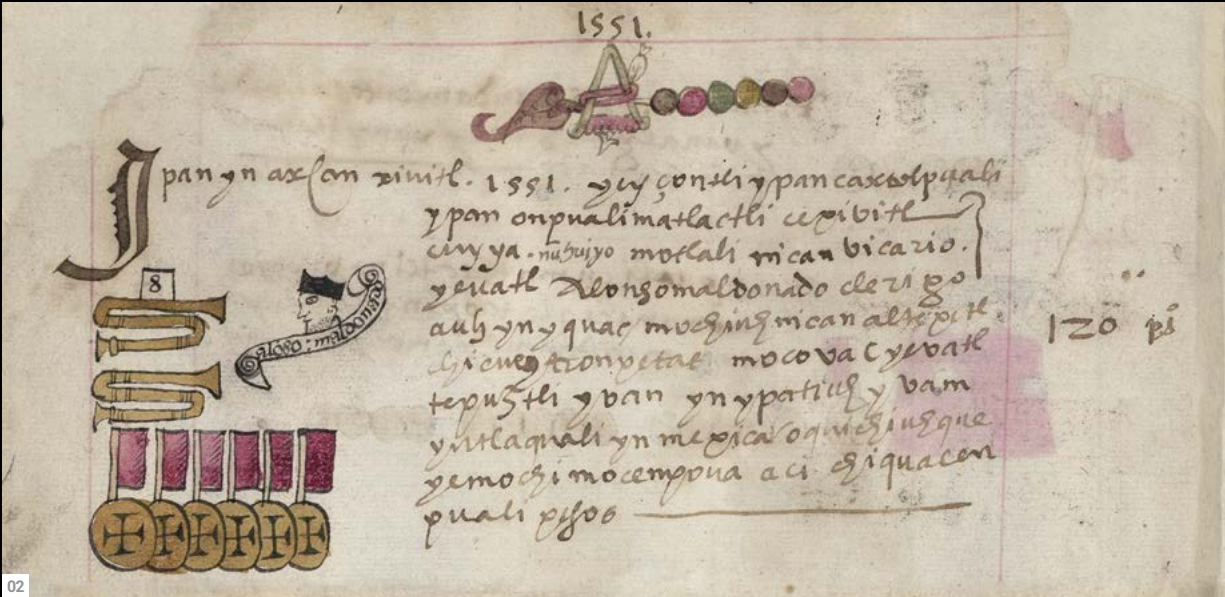 1551.
A
Ipan yn axcan xivitl. 1551. yey çontli ypan caxtolpuali
ypan onpualimatlactli ce xivitl
ya. motlali nican vicario.
yevatl Alonso maldonado clerigo
auh yn yquac mochiuh nican altepetl
chicuey tronpetas mocovac yevatl
tepuztli yvan yn ypatiuh y vam
yntlaquali yn mexica oquichiuhque
ye mochi mocenpova aci chiquacen
puali pesos
120 ps
8
alōso: maldonado
02